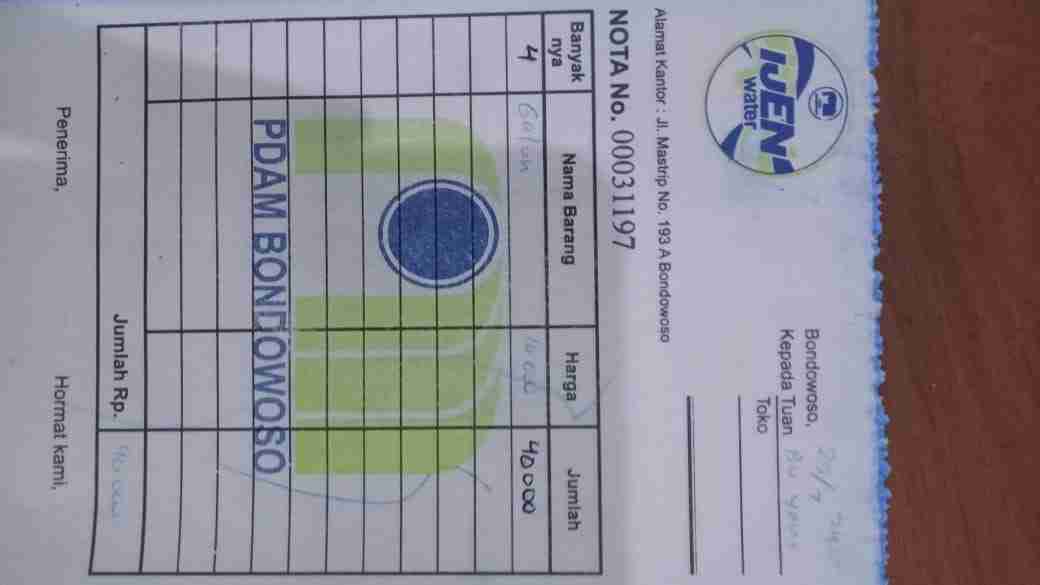 IJEN
water
Bondowoso, 29/7 24
Kepada Tuan Bu
Toko
Alamat Kantor : Jl. Mastrip No. 193 A Bondowoso
NOTA No. 00031197
Banyak nya Nama Barang Harga Jumlah
4 Galon 10 000 40 000
PDAM BONDOWOSO
Jumlah Rp. 40 000
Penerima, Hormat kami,